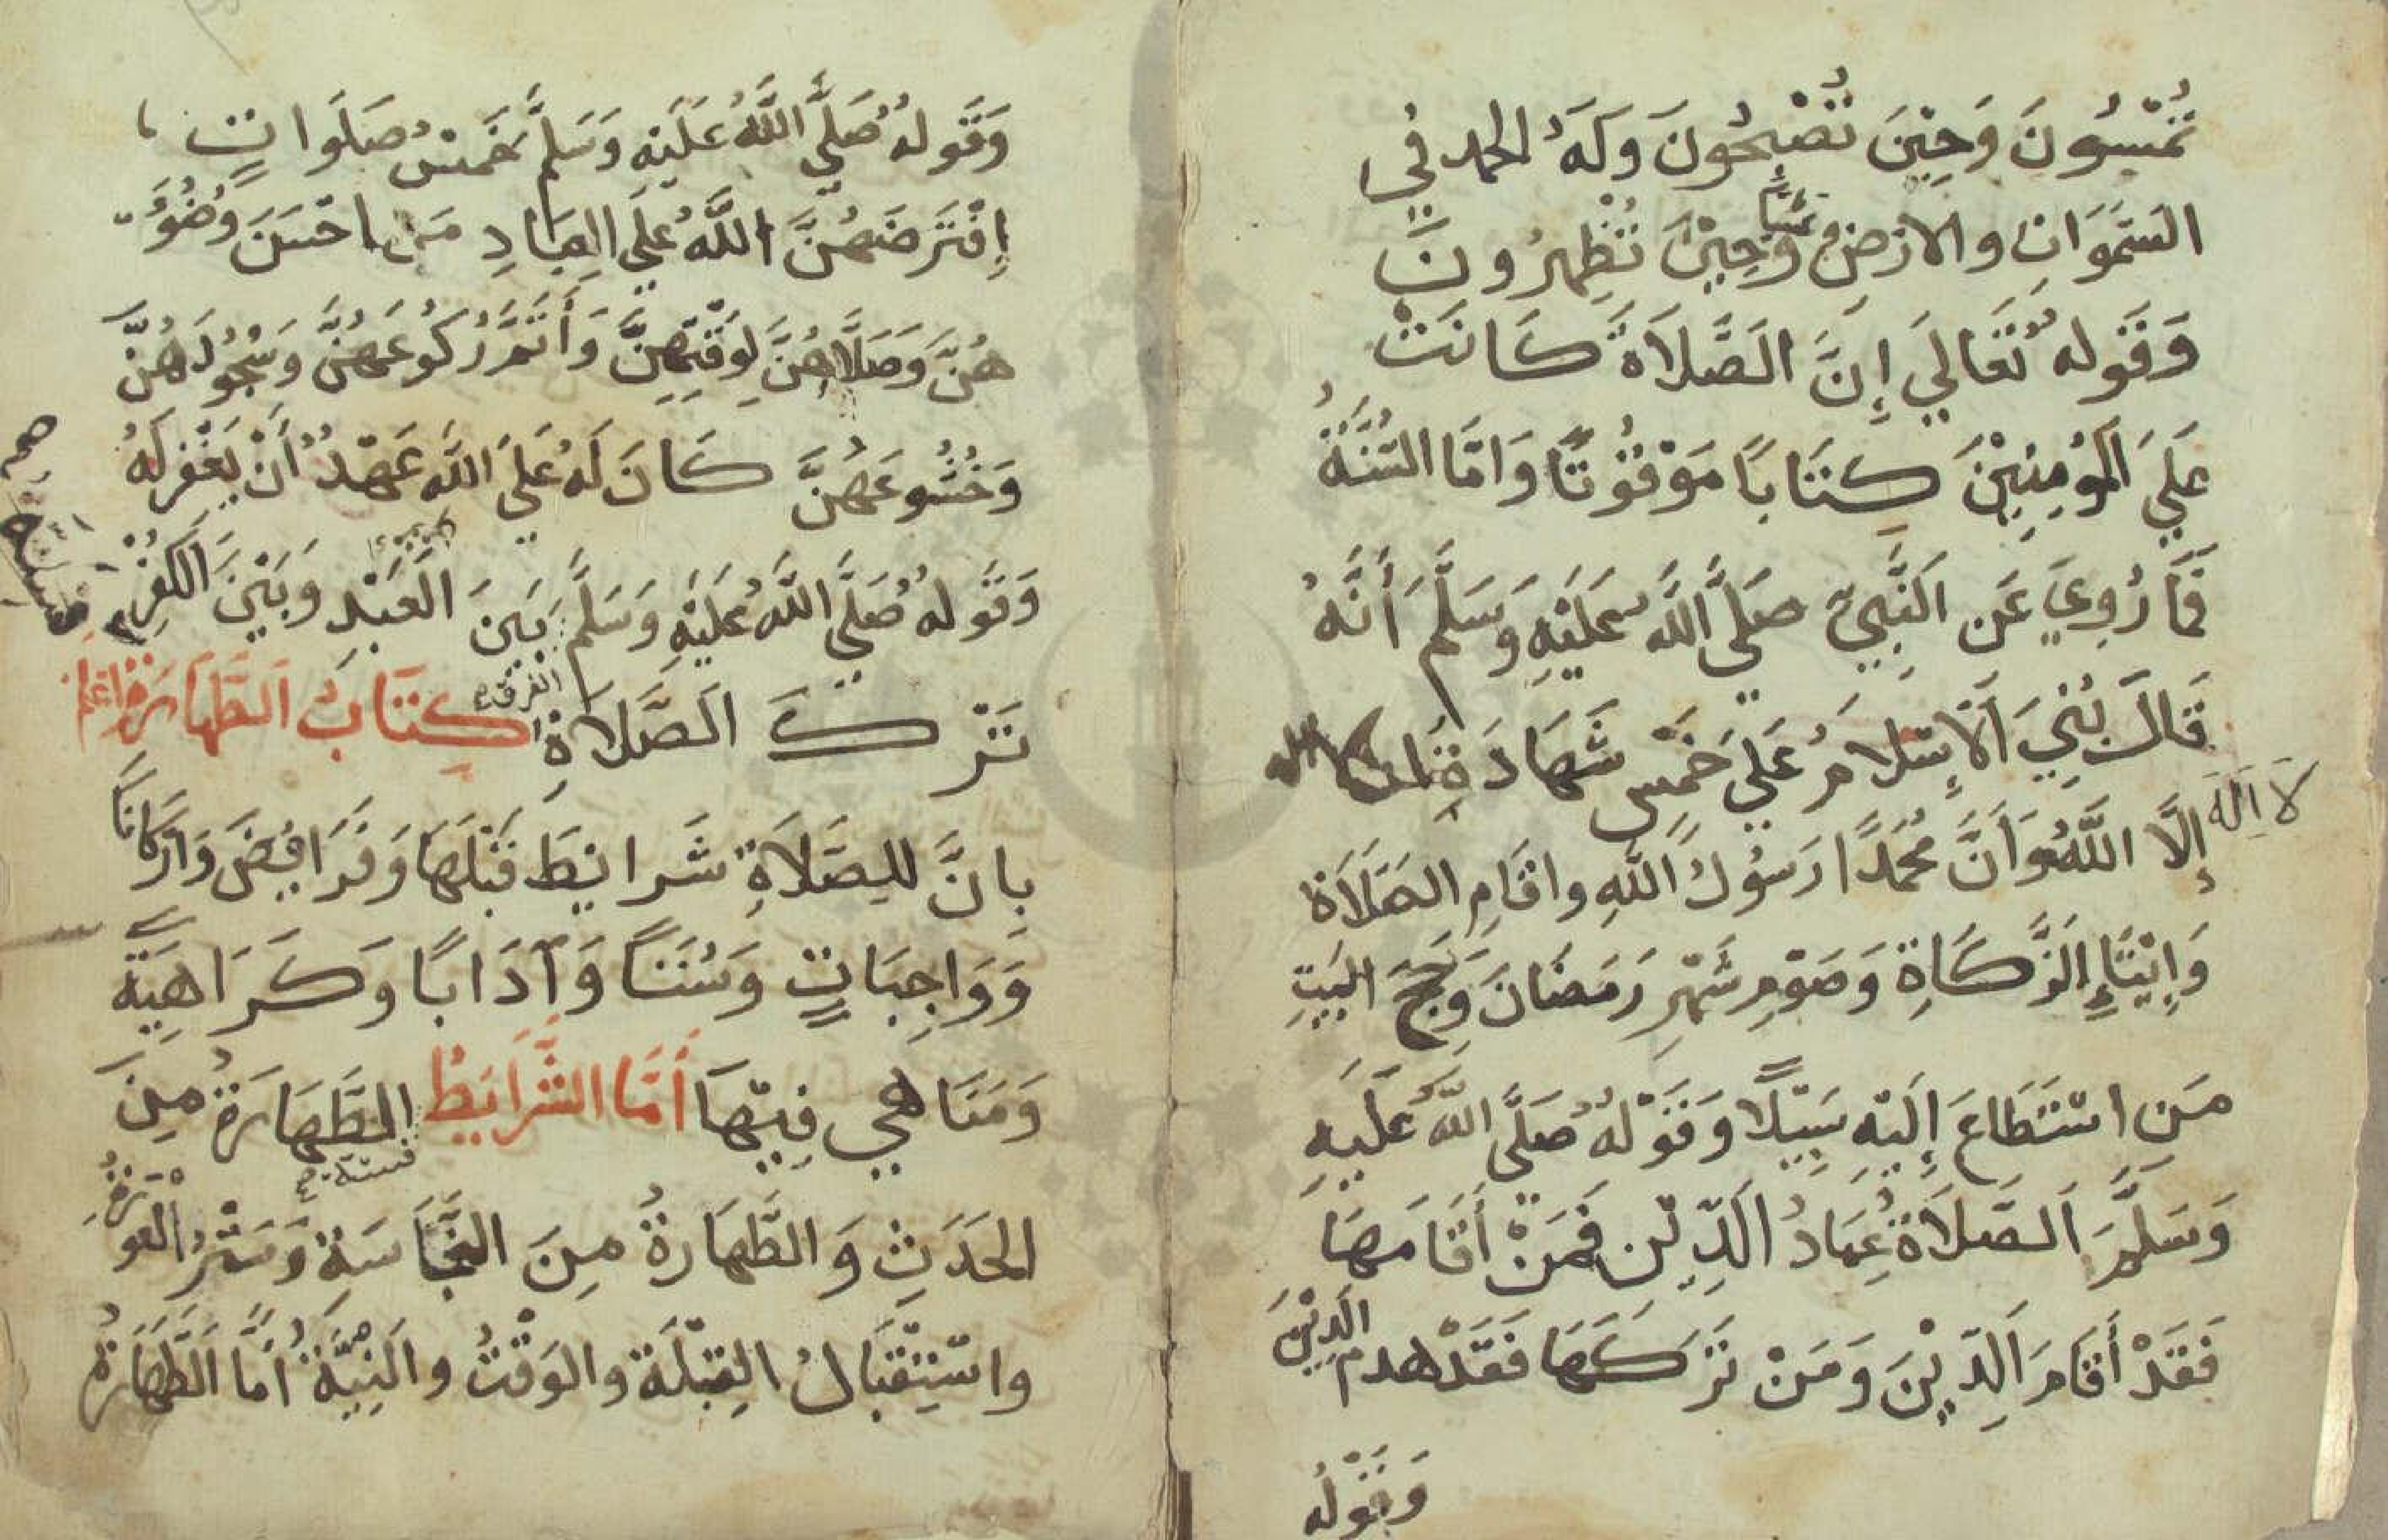 تُمْسُونَ وَحِيْنَ تُصْبِحُونَ وَلَهُ الحمد فِي
السَّمَوَاتِ والارْضِ وَعَشِيًّا وَحِيْنَ تُظْهِرُونَ
وَقَوله تَعَالَي إِنَّ الصَّلَاةَ كَانَتْ
عَلَي الْمُؤمِنِيْنَ كِتَابًا مَوْقُوْتًا وَامَّا السُّنَّةُ
فَمَا رُوِيَ عَن النَّبِيِّ صَلَّي اللَّه عَلَيْهِ وَسَلَّمَ أَنَّهُ
قَالَ بُنِيَ الْإِسْلَامُ عَلَي خَمْسٍ شَهَادَةِ ان
لَا اِلَهَ إِلَّا اللَّهُ وَأَنَّ مُحَمَّدًا رَسُوْلُ اللهِ واقَامِ الصَّلَاةِ
وَإِيْتَاءِ الزَّكَاةِ وَصَوْمِ شَهْرِ رَمَضَانَ وَحَجِّ البَيتِ
مَنِ اسْتَطَاعَ إِلَيْهِ سَبِيْلًا وَقَوْلهُ صَلَّي اللَّهُ عَلَيهِ
وَسَلَّمَ الصَّلَاةُ عِمَادُ الدِّيْنِ فَمَنْ أَقَامَهَا
فَقَدْ أَقَامَ الدِّيْنَ وَمَنْ تَرَكَهَا فَقَدْ هدم الدِّيْنَ
وَقَوْلُه
وَقَوله صَلَّي اللَّهُ عَلَيْهِ وَسَلَّمَ خَمسُ صَلَوَاتٍ
اِفْتَرَضَهُنَّ اللَّهُ عَلَي العِبَادِ مَن احْسَنَ وُضُؤَ
هُنَّ وَصَلَّاهُنَّ لِوَقْتِهِنَّ وَأَتَمَّ رُكُوعَهُنَّ وَسُجُوْدَهُنَّ
وَخُشُوعَهُنَّ كَانَ لَهُ عَلَي اللَّهِ عَهْدٌ أَنْ يَغْفِرَ لَهُ
وَقَوله صَلَّي اللَّهُ عَلَيْهِ وَسَلَّمَ بَينَ العَبْدِ وَبَيْنَ الكُفْرِ
تَرْكُ الصَّلَاةِ كِتَابُ الطَّهَارَةِ اعلم
بِانَّ لِلصَّلَاةِ شَرايِطَ قَبْلَهَا وَفَرَايِضَ وَارْكَانًا
وَوَاجِبَاتٍ وَسُنَنًا وَآدَابًا وَكَرَاهِيَةً
وَمَنَاهِيَ فِيْهَا أَمَّا الشَّرَايِطُ فستة الطَّهَارَةُ مِنَ
الحَدَثِ وَالطَّهَارَةُ مِنَ النَّجَاسَةِ وَسَتْرُ العَوْرَةِ
واسْتِقْبَالُ القِبْلَةِ والوَقْتُ والنِيَّةُ أَمَّا الطَّهَارَةُ